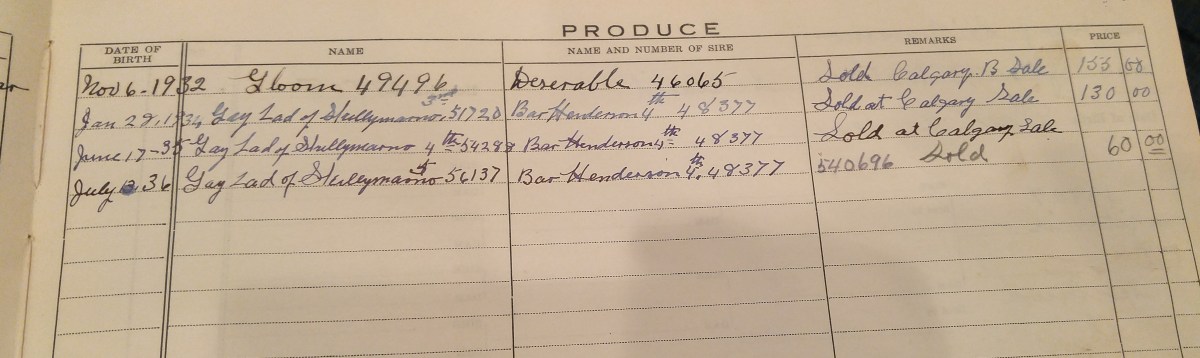 PRODUCE
DATE OF BIRTH NAME NAME AND NUMBER OF SIRE REMARKS PRICE
Nov 6-1932 Gloom 49496 Deserable 46065 Sold Calgary B Sale 155 00
Jan 29, 1934 Gay Lad of Skullymarno 3rd 51720 Bar Henderson 4th 48377 Sold at Calgary Sale 130 00
June 17-35 Gay Lad of Skullymarno 4th 54288 Bar Henderson 4th 48377 Sold at Calgary Sale
July 36 Gay Lad of Skullymarno 5 56137 Bar Henderson 4th 48377 540696 Sold 60 00